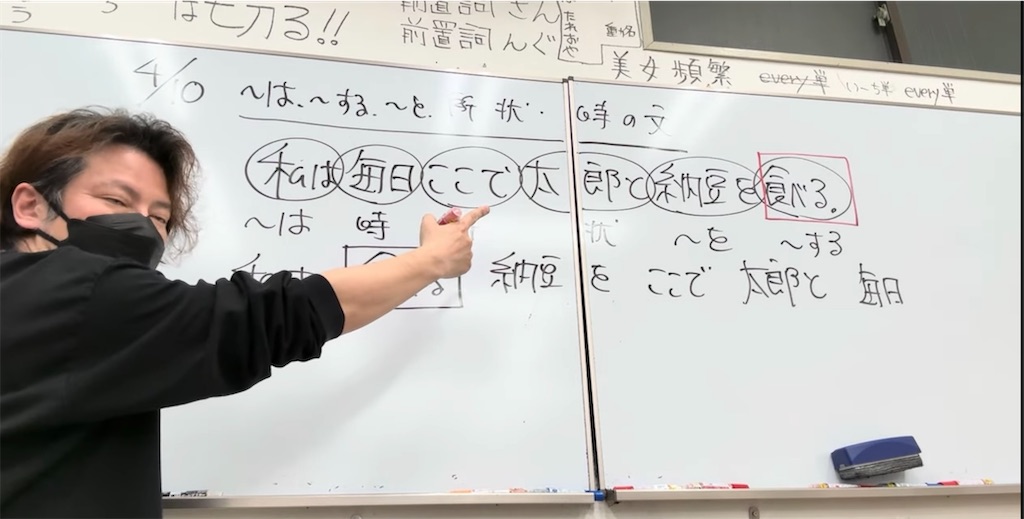 は七刀る!!
前置詞さん
前置詞んぐ
美女頻繁 every単 い〜ち単 every単
4/10
〜は、〜する、〜を、所 状・時の文
私は毎日ここで太郎と納豆を食べる。
〜は 時 状 〜を 〜する
納豆 を ここで 太郎と 毎日